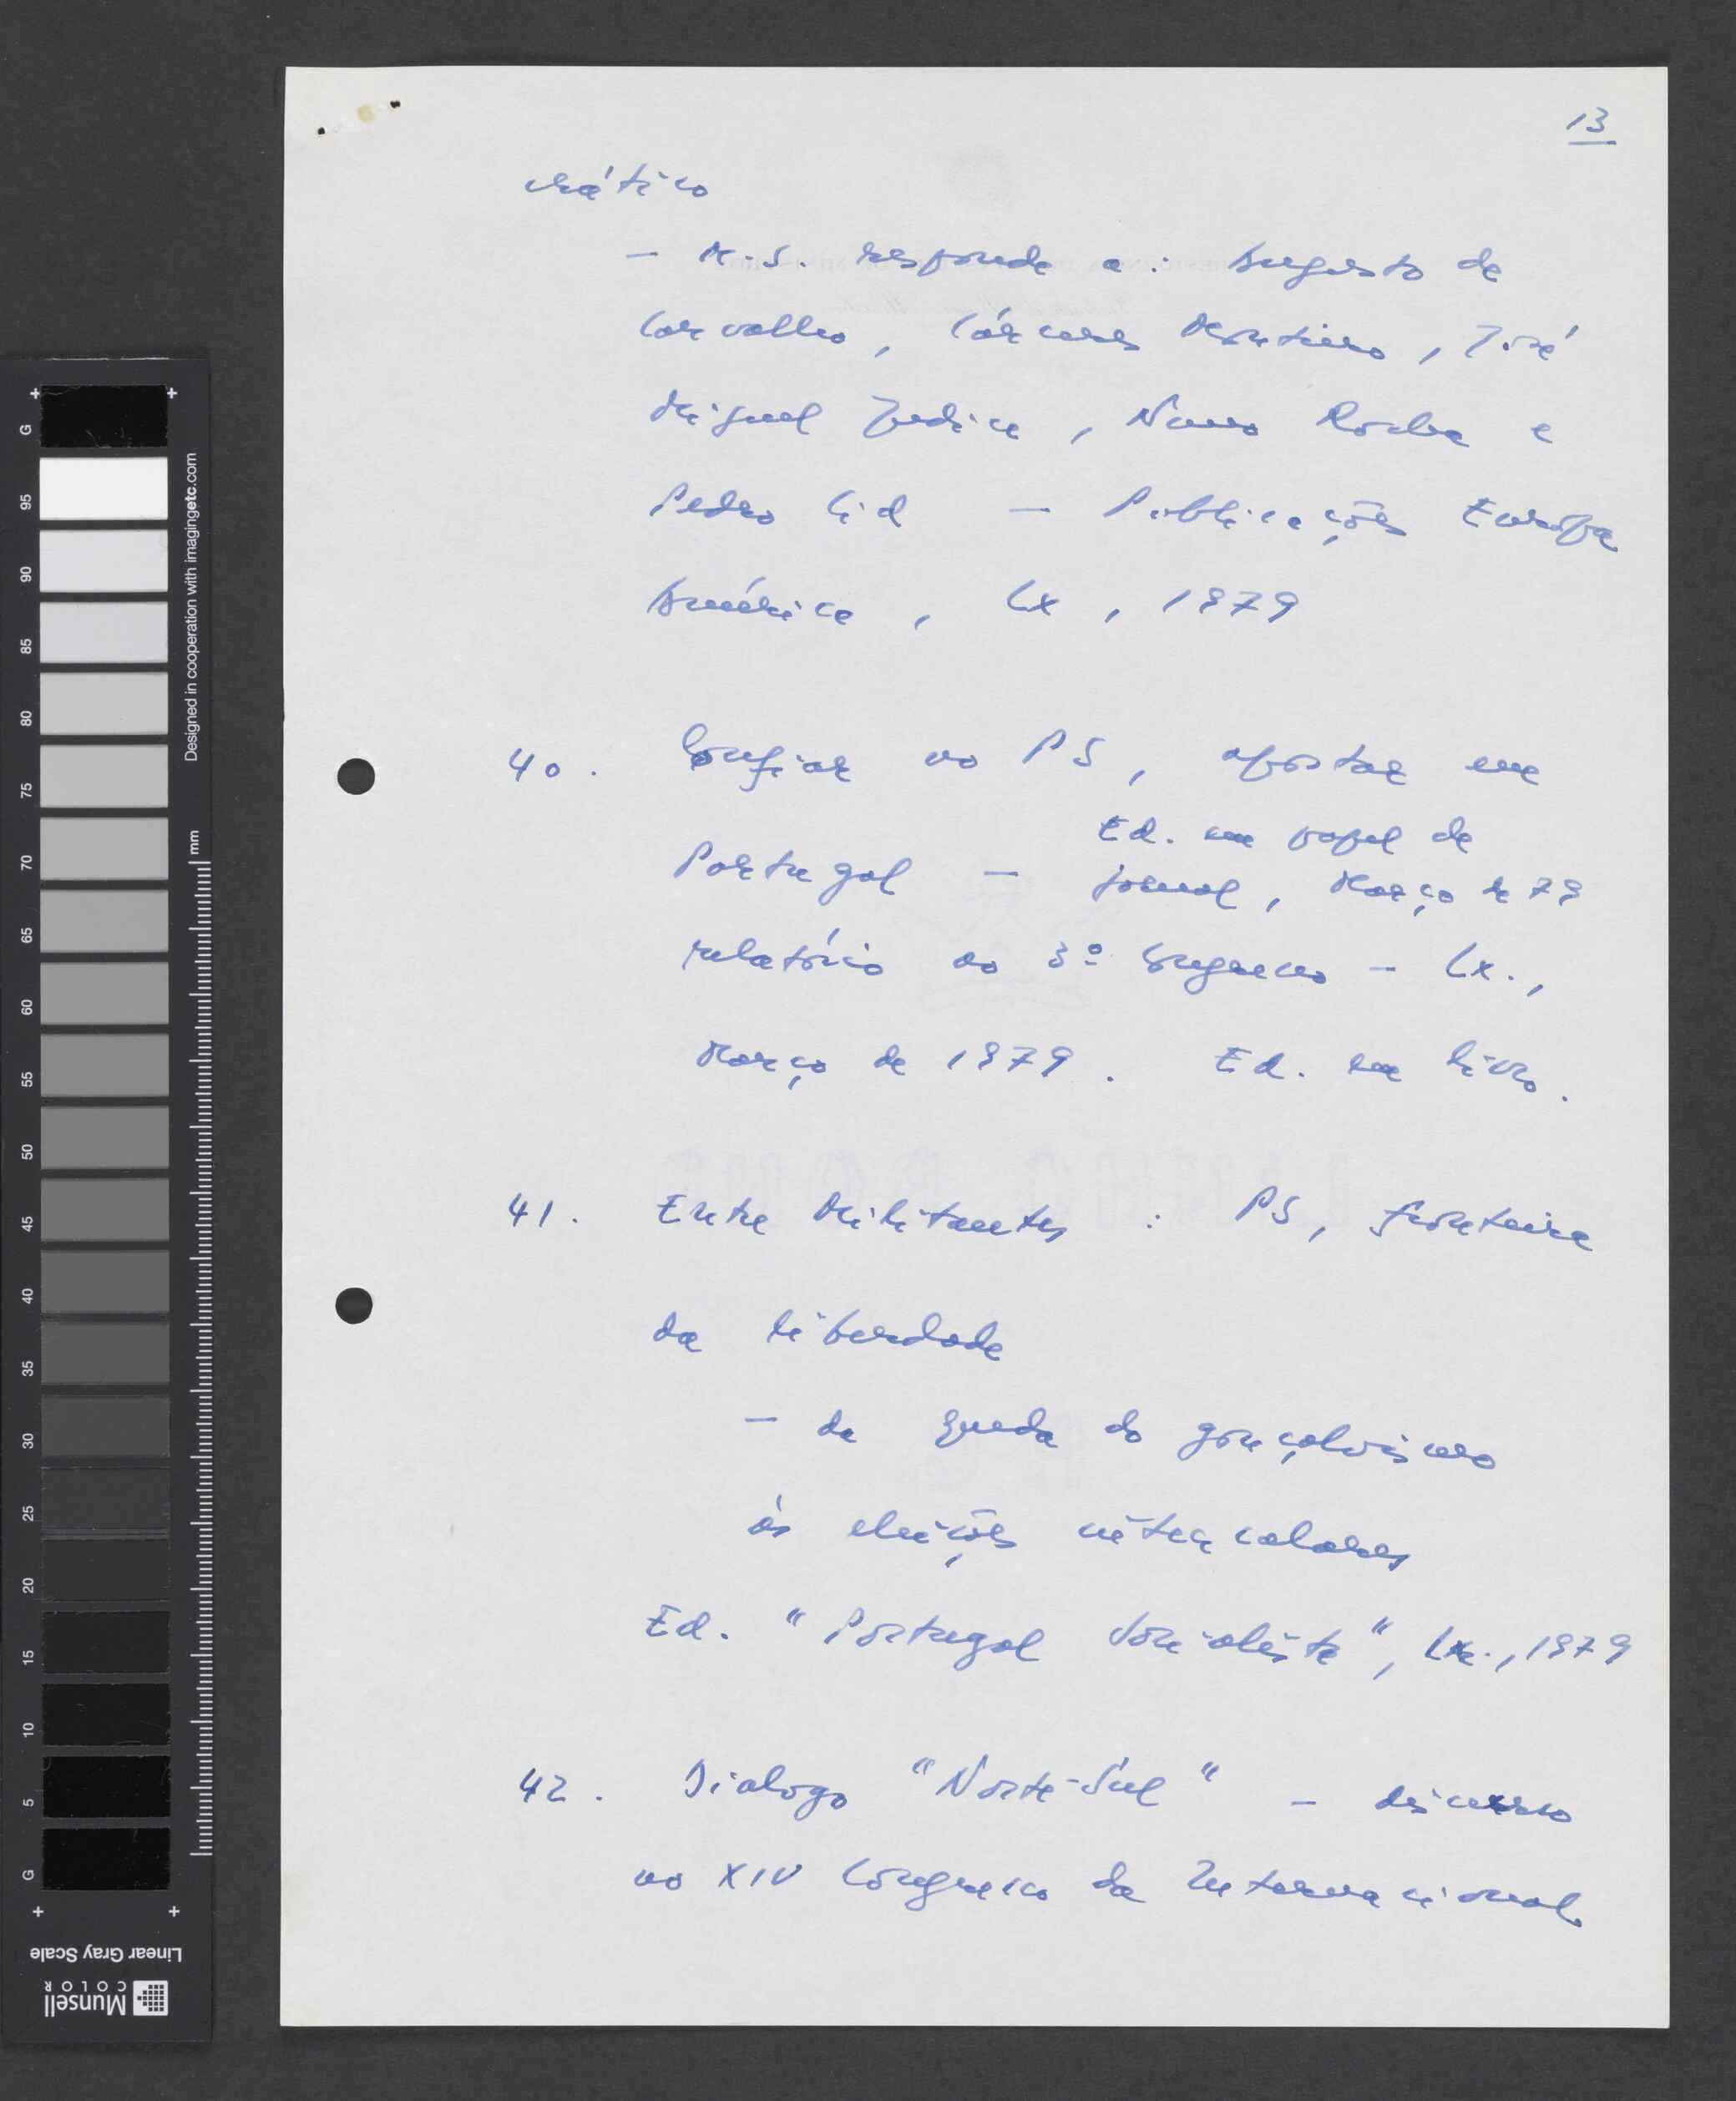 13
crático
- M.S. responde a: Augusto de
Carvalho, Cárceres Monteiro, José
Miguel Júdice, Nuno Rocha e
Pedro Cid - Publicações Europa
América, Lx, 1979
40. Confiar no PS, apostar em
Ed. em papel de
Portugal - jornal, Março de 79
relatório ao 3º Congresso - Lx.,
Março de 1979. Ed. em livro.
41. Entre Militantes: PS, fronteira
da liberdade
- da queda do gonçalvismo
às eleições intercalares
Ed. "Portugal Socialista", Lx., 1979
42. Dialogo "Norte-Sul" - discurso
no XIV Congresso da Internacional
G
95
90
85
80
75
70
65
60
55
50
45
40
35
30
25
20
15
10
5
G
mm
Designed in cooperation with imagingetc.com
Linear Gray Scale
Munsell
COLOR